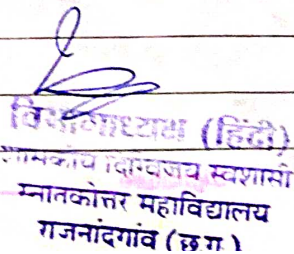 विभागाध्यक्ष (हिंदी)
शासकीय दिग्विजय स्वशासी
स्नातकोत्तर महाविद्यालय
राजनांदगांव (छ.ग.)